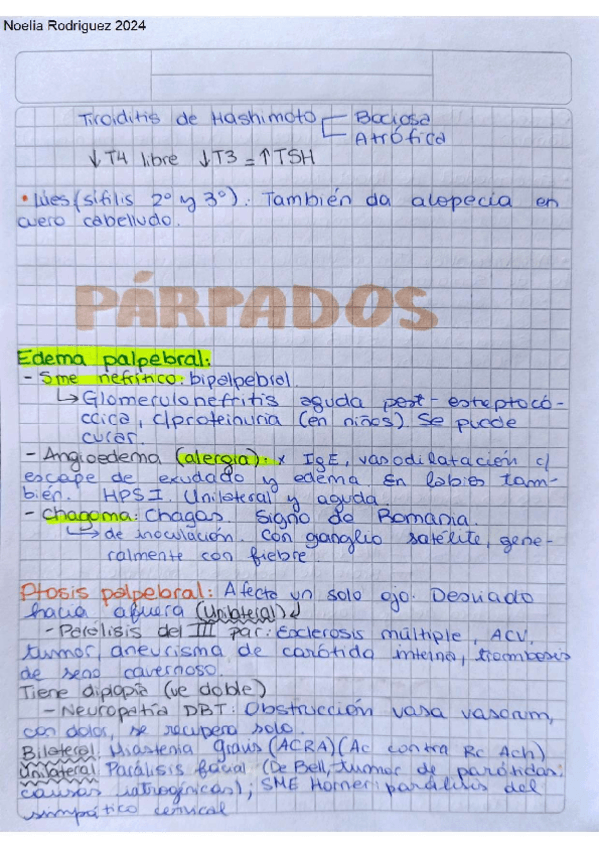 Noelia Rodriguez 2024
Tiroiditis de Hashimoto Bociosa
Atrófica
↓T4 libre ↓T3 = ↑TSH
• Lúes (sífilis 2º y 3º). También da alopecia en
cuero cabelludo.
PÁRPADOS
Edema palpebral:
- Sme nefrítico: bipalpebral.
↳ Glomerulonefritis aguda post-estreptocó-
ccica, c/proteinuria (en niños). Se puede
curar.
- Angioedema (alergia): x IgE, vasodilatación c/
escape de exudado y edema. En labios tam-
bién. HPS I. Unilateral y aguda.
- Chagoma: Chagas. Signo de Romania.
↳ de inoculación. Con ganglio satélite, gene-
ralmente con fiebre.
Ptosis palpebral: Afecta un solo ojo. Desviado
hacia afuera (Unilateral)↓
- Parálisis del III par: Esclerosis múltiple, ACV,
tumor, aneurisma de carótida interna, trombosis
de seno cavernoso.
Tiene diplopía (ve doble)
- Neuropatía DBT: Obstrucción vasa vasorum,
con dolor, se recupera solo.
Bilateral: Miastenia gravis (ACRA) (Ac contra Rc Ach)
Unilateral: Parálisis facial (De Bell, tumor de parótidas;
causas iatrogénicas); SME Horner: parálisis del
simpático cervical